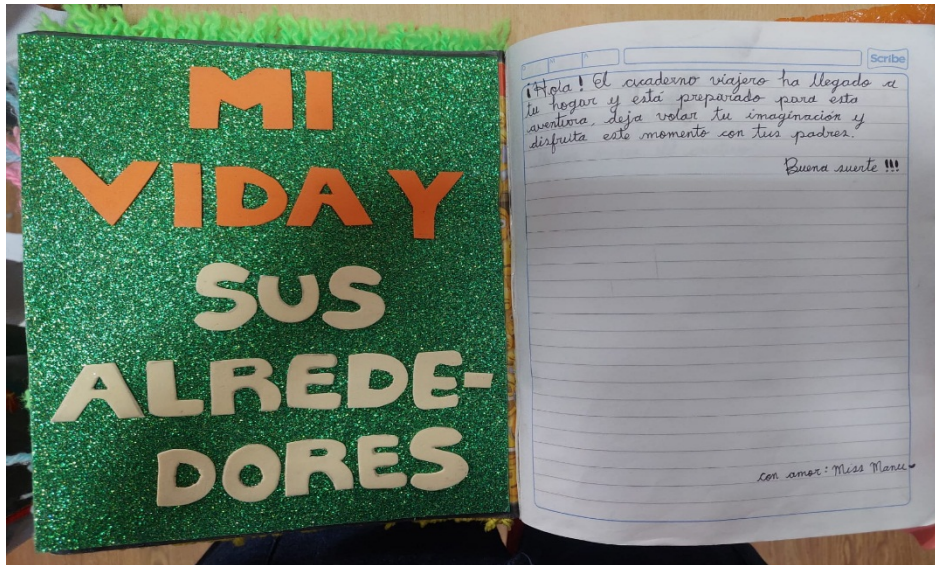 MI
VIDA Y
SUS
ALREDE-
DORES
Scribe
¡Hola! El cuaderno viajero ha llegado a
tu hogar y está preparado para esta
aventura, deja volar tu imaginación y
disfruta este momento con tus padres.
Buena suerte !!!
con amor: Miss Manu